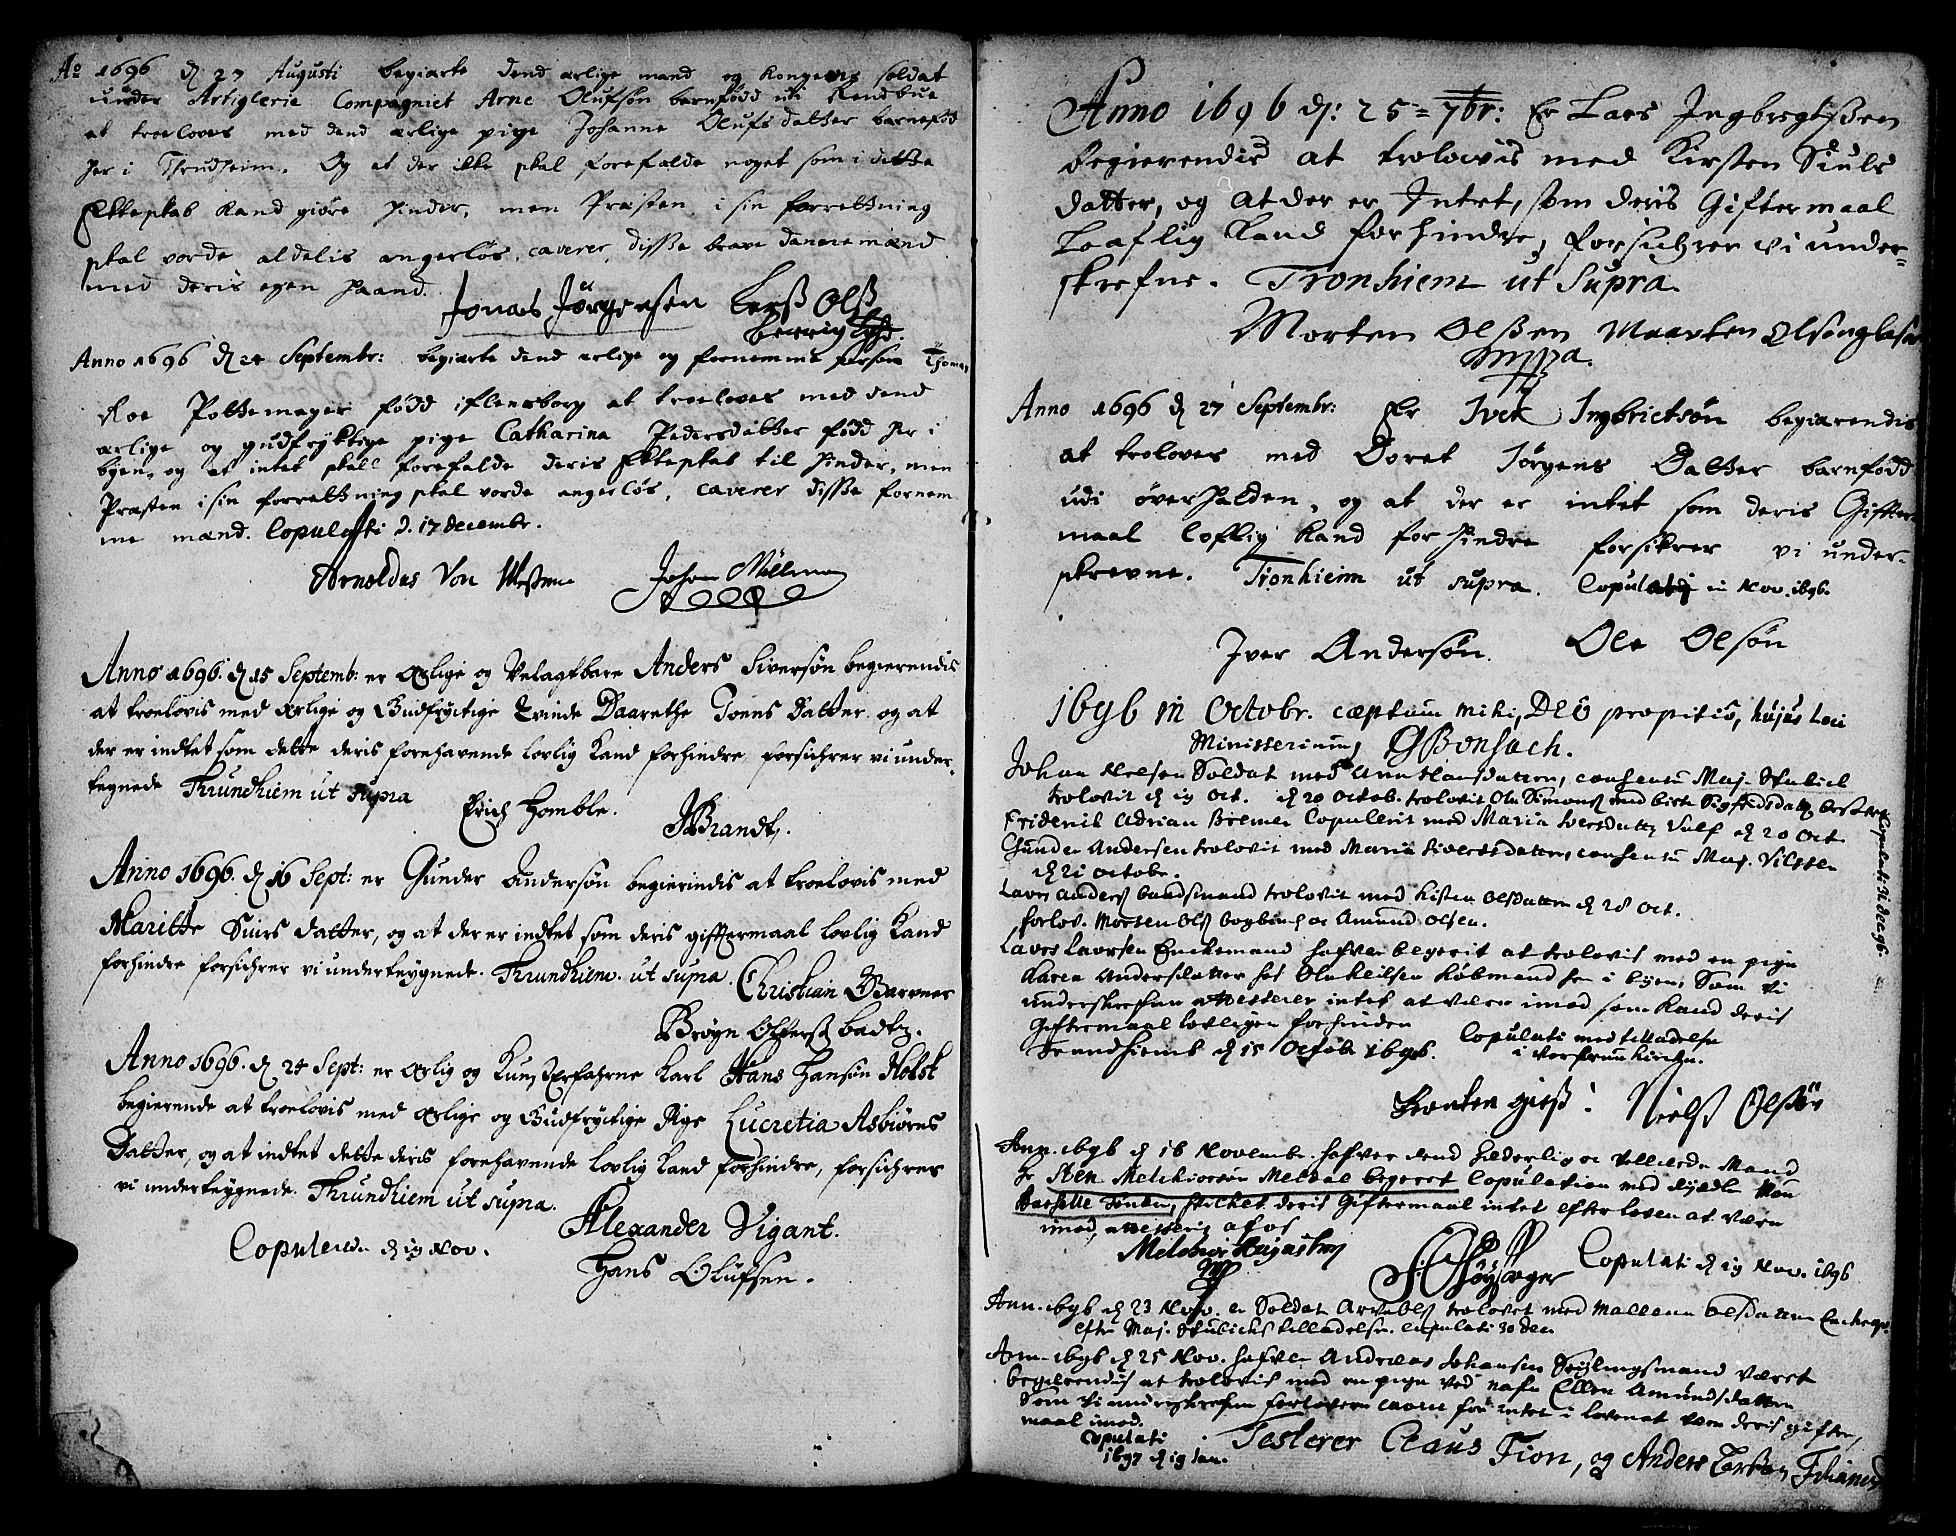 Ao 1696 d 27 Augusti begiærte dend ærlige mand og Kongens soldat
under Artiglerie Compagniet Arne Olufsøn barnfødd uti Rendbue
at troeloves med dend ærlige pige Johanne Olufsdatter barnefød
her i Thrudheim. Og at der ikke skal forefalde noget som i dette
Ekteskab kand giøre hinder, men Præsten i sin forrettning
skal vorde aldelis angerløs, caverer disse brave dannemænd
med deris egen haand.
Jonas Jørgensen Lerß Olß
Anno 1696 d 24 Septembr: begiærte dend ærlige og fornemme person Thomas
Roe Pottemager fødd i flensborg at troeloves med dend
ærlige og gudfryktige pige Catharina Pedersdatter fødd her i
byen, og at intet skall forefalde deris Ekteskab til hinder, men
Præsten i sin forrettning skal vorde angerløs, caverer disse fornem
me mænd. Copulati d. 17 decembr.
Arnoldus Von Westen Johan Møllman
Anno 1696. d 15 Septemb: er Ærlige og Velagtbare Anders Siversøn begierendis
at troelovis med Ærlige og Gudfryctige Qvinde Daarethe Joens Datter og at
der er indtet som dette deris forehavende lovlig kand forhindre forsichrer vi under-
tegnede Thrundhiem ut supra
Erich Homble. JBrandt.
Anno 1696. d 16 Sept: er Gunder Andersøn begierindis at troelovis med
Maritte Siurs datter, og at der er indtet som deris giftermaal lovlig kand
forhindre forsichrer vi underteygnede. Thrundhiem. ut supra. Christian Barvner
Brøyn Olferß
Anno 1696. d 24 Sept: er Ærlig og Kunsterfahrne Karl Hans Hansøn Holst
begierende at troelovis med Ærlige og Gudfryctige Pige Lucretia Asbiørns
Datter, og at indtet dette deris forehavende lovlig kand forhindre, forsichrer
vi underteygnede. Thrundhiem ut supra.
Alexander Vigant.
Copulerede d 19 Nov.
Hans Olufsen.
Anno 1696 d: 25 = 7br: Er Lars Ingbregtßen
begierendis at trolovis med Kirsten Siuls
datter, og at der er Intet, som deris Giftermaal
Loaflig kand forhindre, forsichrer vi under-
skrefne. Tronhiem ut Supra.
Morten Olßen Maarten Olsøn
Anno 1696 d 27 Septembr: Er Iver Ingbrictsøn begiærendis
at troloves med Doret Jørgens Datter barnfødd
udi øverhalden, og at der er intet som deris Gifter
maal loflig kand forhindre forsikrer vi under-
skrevne. Tronhiem ut supra. Copulati in Nov. 1696.
Iver Andersøn. Ole Olsøn
1696 in Octobr. cæptum mihi, DEO propitio, hujus loci
Ministerium, GBonsach.
Johan Nelsen Soldat med Ann Hansdatter, consensu Maj. Skulich
trolovit d 19 Oct. d 20 Octob. trolovit Ole Simonß med Birte Sigfridsdatt
Friderik Adrian Bremer Copulerit med Maria Iversdatt Vulf d 20 Oct
Gunder Andersen trolovit med Marit Siversdatter, consensu Maj. Vilsten
d 21 octobr.
Lavrs Anders baadsmand trolovit med Kisten Olsdatter d 28 Oct.
forlov. Morten Olß bogbinder oc Amund Olsen.
Copulati 31 dec 96.
Lavrs Lavrsen Enckemand hafver begerit at trolovis med en pige
Karen Andersdatter hos Ole Neilsen Kiøbmand her i byen, Som vi
underskrefne attesterer intet at være imod som kand deris
Giftermaal lovligen forhinder
Trondhiemb d 15 Octob 1696. Copulati med tilladelse
i Vor frue kircke.
Nielß Olßøn
Ann. 1696 d 16 Novembr. hafver dend Hæderlig oc Vellærde Mand
Hr Sten Melchiorsøn Meldal begeret Copulation med
intet efter loven at være
imod, attesteris af os
Melchior Augustin Copulati d 19 Nov. 1696
Ann. 1696 d 23 Nov. er Soldat Arve Olß trolovet med Malene Olsdatter Encke
efter Maj. Skulichs tilladelse. copulati 30 dec
Ann. 1696 d 25 Nov. hafver Andreas Johansen Seylingsmand været
begærendis at trolovis med en pige ved nafn Ellen Amundsdatter
Som vi underskrefne forlovere cavere for intet i loven at være deris gifter
maal imod.
Copulati
1697 d 19 Jan. Testerer Claus Fion, og Anders